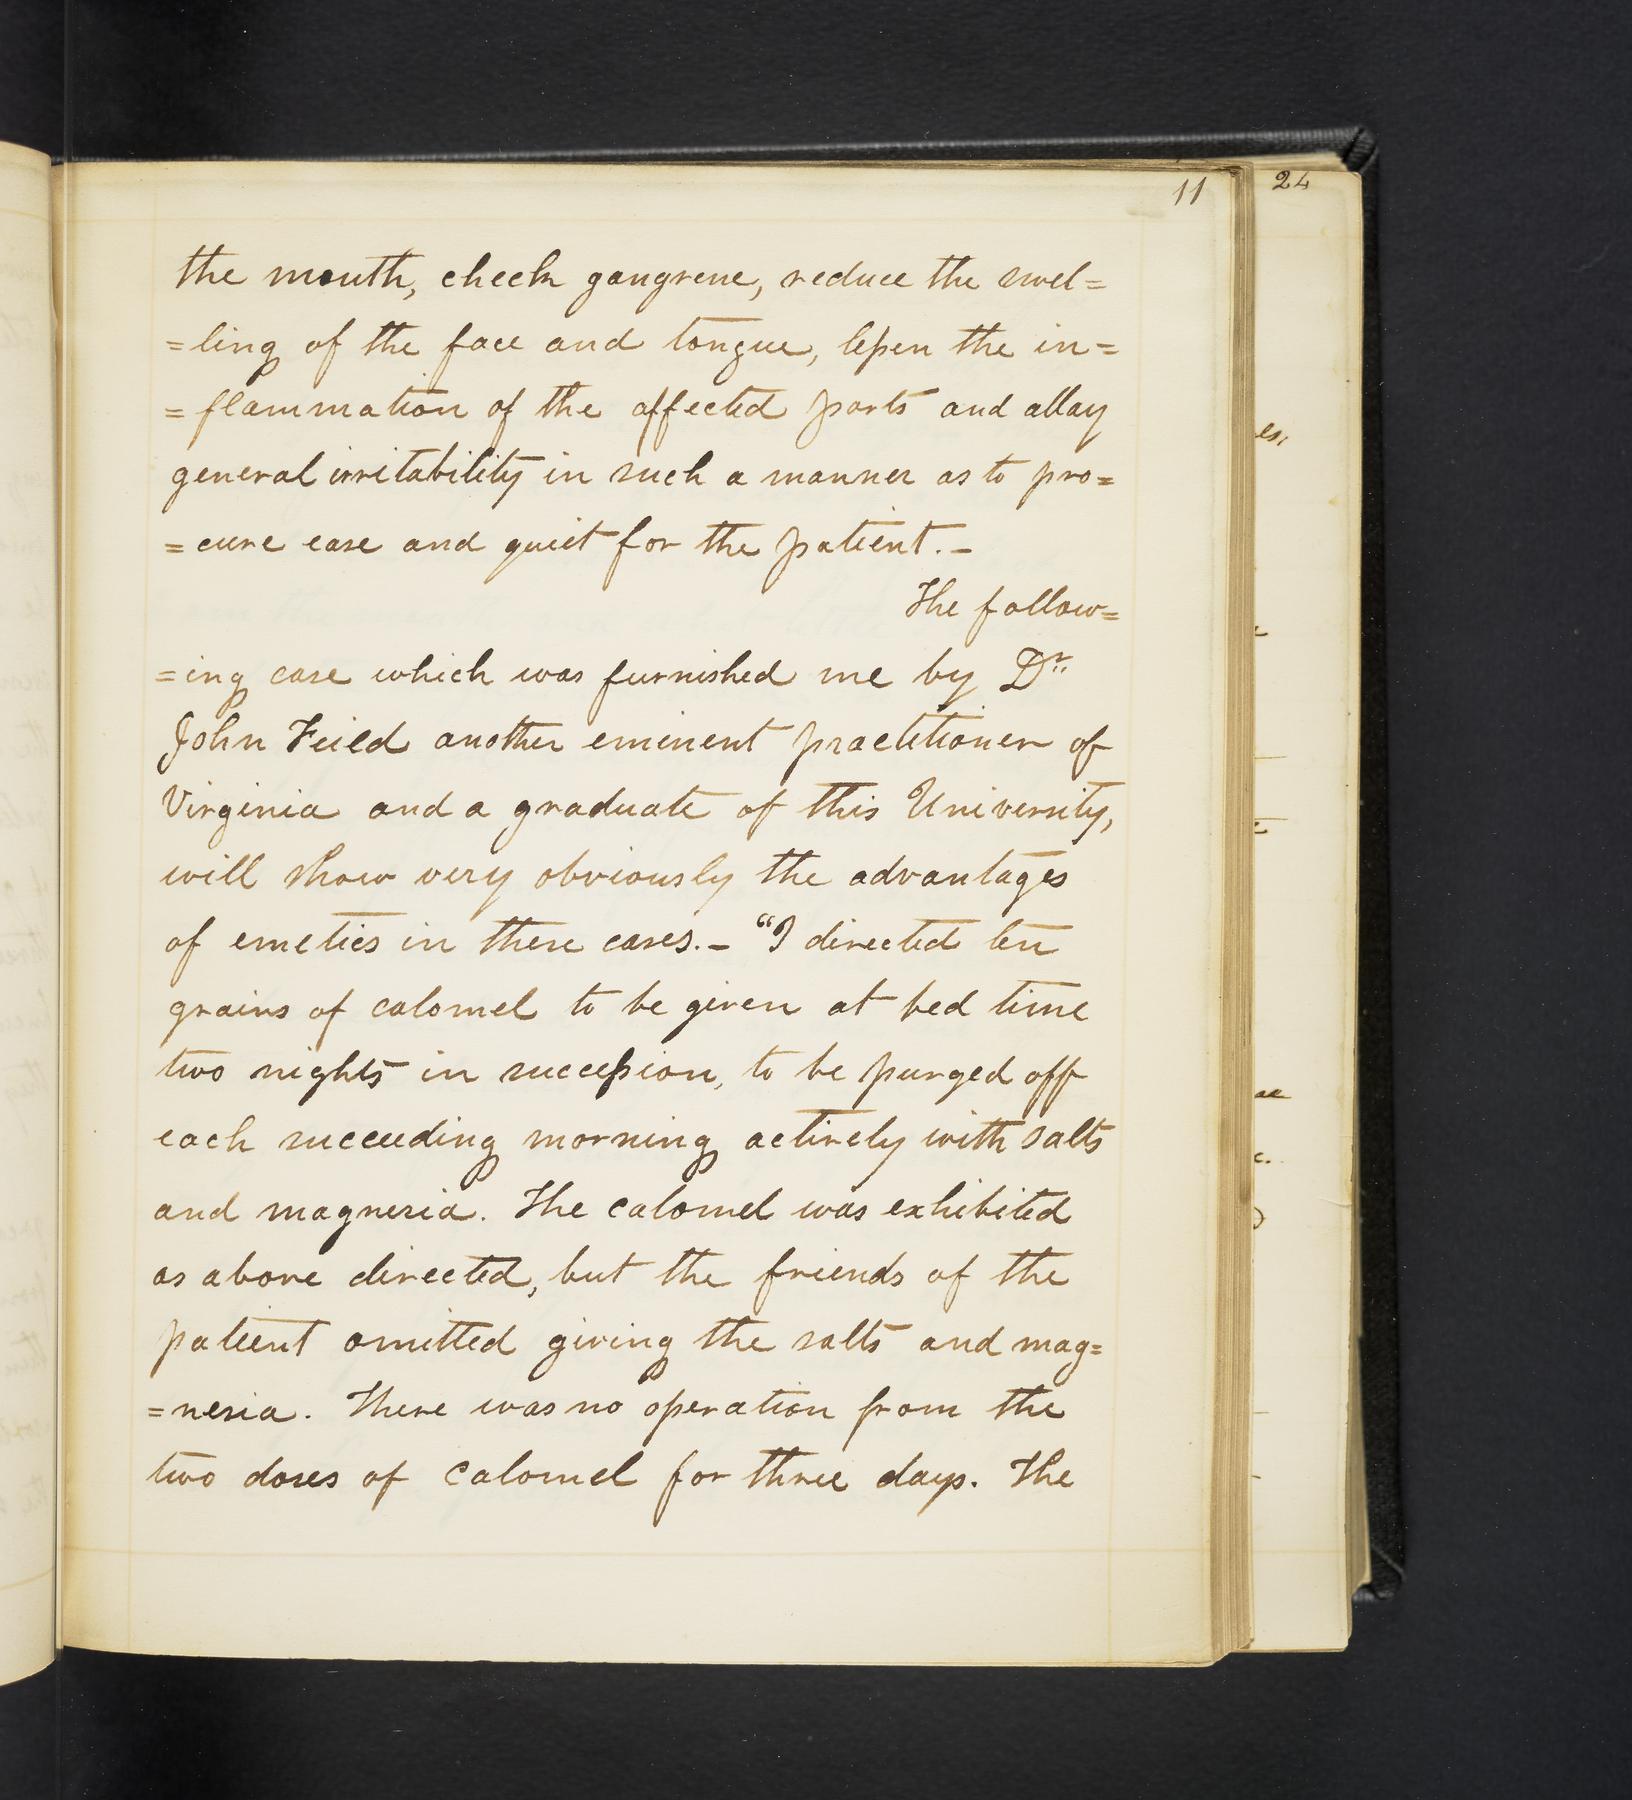 11
24
the mouth, check gangrene, reduce the swel=
=ling of the face and tongue, leſsen the in=
=flammation of the affected parts and allay
general irritability in such a manner as to pro=
=cure ease and quiet for the patient.—
The follow=
=ing case which was furnished me by Dr.
John Feild another eminent practitioner of
Virginia and a graduate of this University,
will show very obviously the advantages
of emetics in these cases.— “I directed ten
grains of calomel to be given at bed time
two nights in succeſsion, to be purged off
each succeeding morning actively with salts
and magnesia. The calomel was exhibited
as above directed, but the friends of the
patient omitted giving the salts and mag=
=nesia. There was no operation from the
two doses of calomel for three days. The